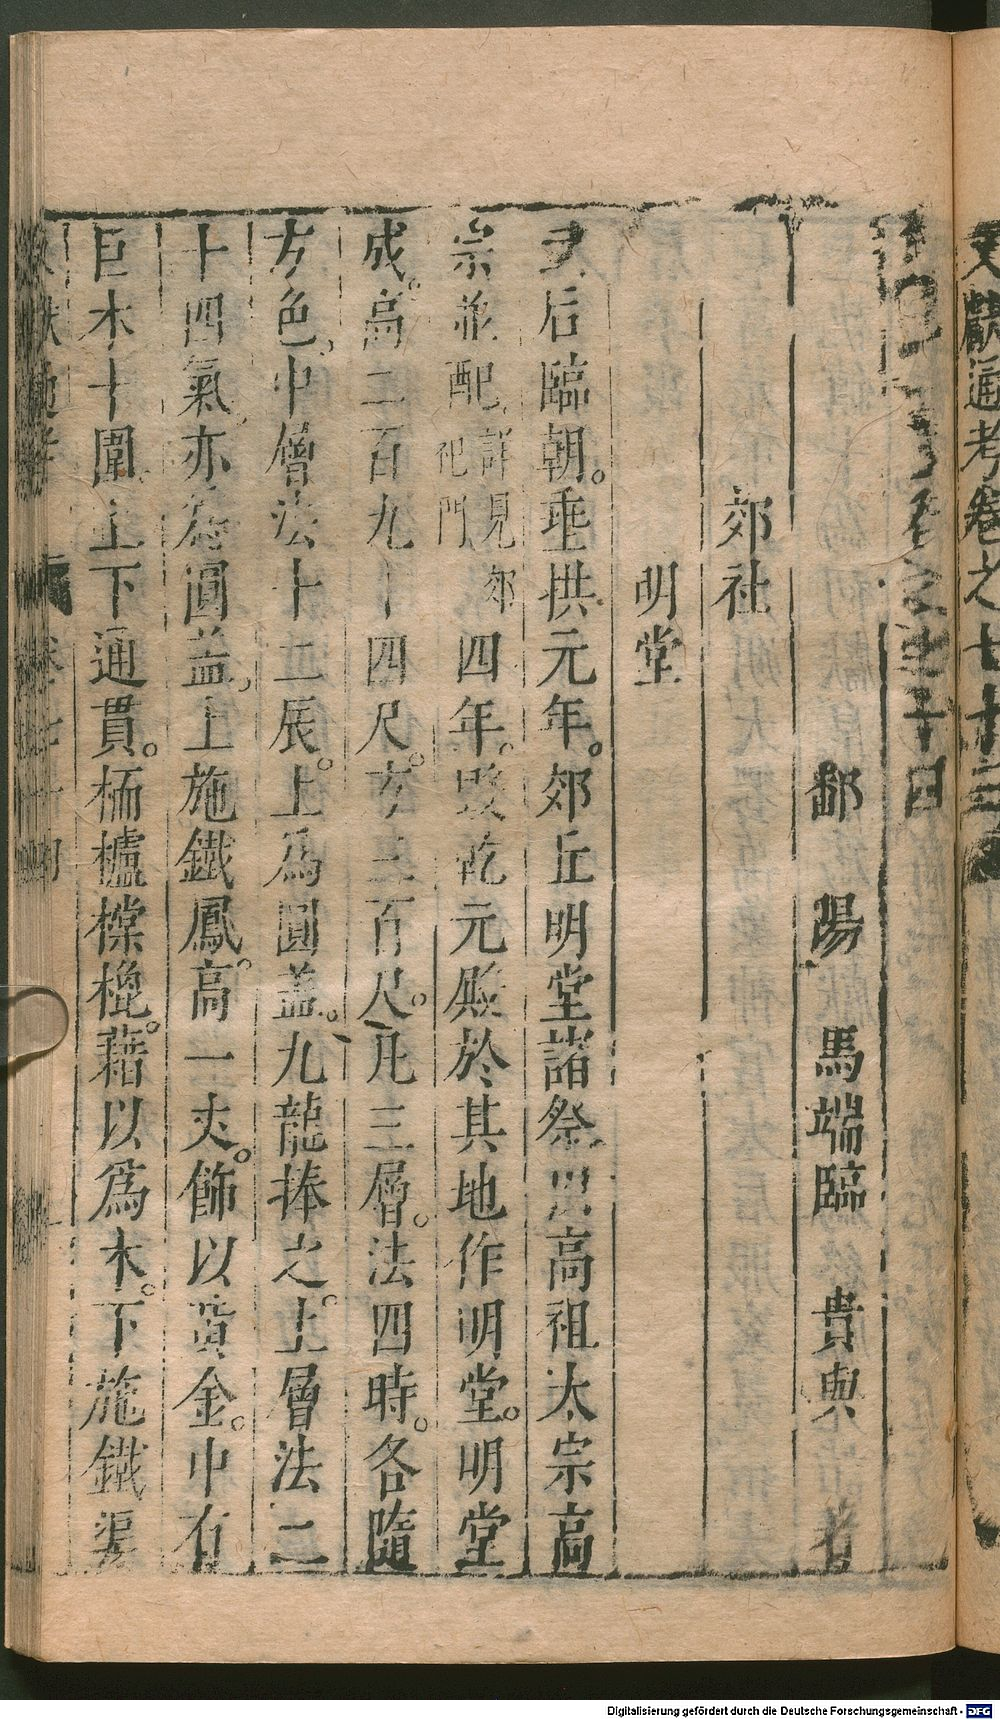 文獻通考卷之七十三
考卷之七十四
鄱陽馬端臨貴與著
郊社
明堂
武后臨朝。垂拱元年。郊丘明堂諸祭以高祖太宗高
宗並配詳見郊祀門四年。毀乾元殿於其地作明堂。明堂
成。高二百九十四尺。方三百尺。凡三層。法四時。各隨
方色。中層法十二辰。上爲圓蓋。九龍捧之。上層法二
十四氣。亦爲圓蓋。上施鐵鳳。高一丈。飾以黃金。中有
巨木十圍。上下通貫。栭櫨橕㮰。藉以爲本。下施鐵渠
卷七十四
Digitalisierung gefördert durch die Deutsche Forschungsgemeinschaft - DFG